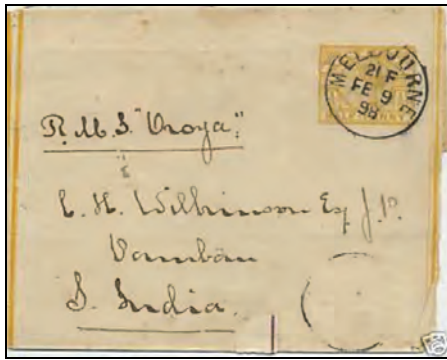 MELBOURNE
21 F
FE 9
98
R.M.S. "Oroya"
Wilkinson Esq J.P.
S. India